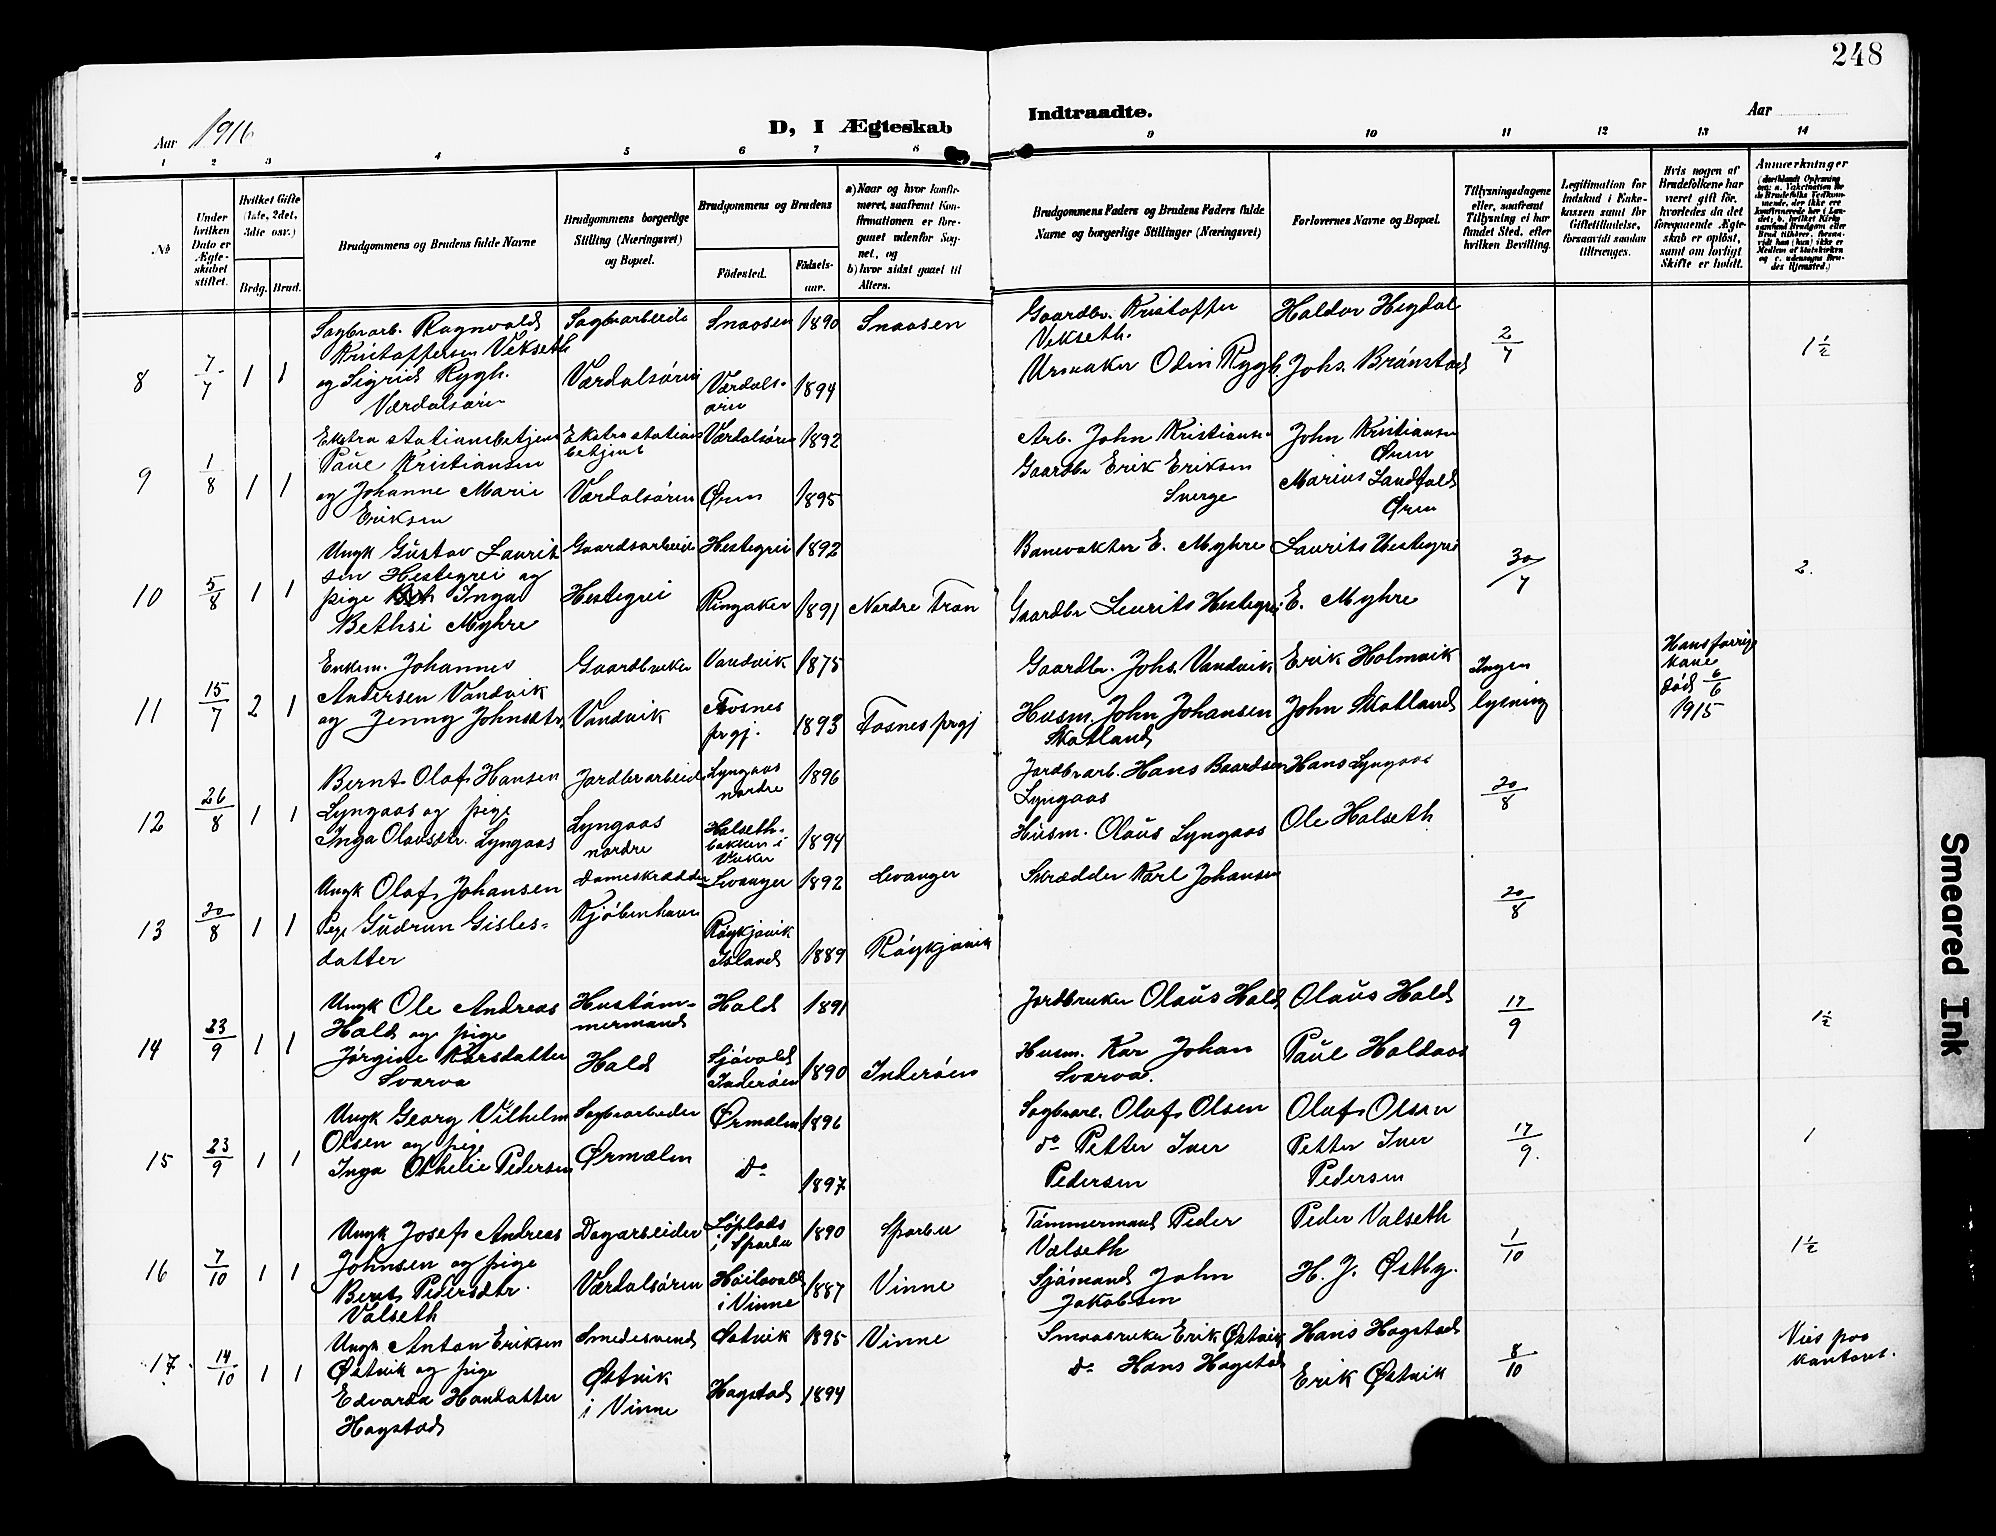 248
Aar 1916
D, I Ægteskab
Indtraadte.
Aar
1 2 3 4 5 6 7 8 9 10 11 12 13 14
No
Under hvilken Dato er Ægteskabet stiftet.
Hvilket Gifte (1ste, 2det, 3die osv.)
Brdg. Brud.
Brudgommens og Brudens fulde Navne
Brudgommens borgerlige Stilling (Næringsvei) og Bopæl.
Brudgommens og Brudens
Fødested.
Fødselsaar.
a) Naar og hvor konfirmeret, saafremt Konfirmationen er foregaaet udenfor Sognet, og
b) hvor sidst gaaet til Alters.
Brudgommens Faders og Brudens Faders fulde Navne og borgerlige Stillinger (Næringsvei)
Forlovernes Navne og Bopæl.
Tillysningsdagene eller, saafremt Tillysning ei har fundet Sted, efter hvilken Bevilling.
Legitimation for Indskud i Enkekassen samt for Giftetilladelse, forsaavidt saadan tiltrænges.
Hvis nogen af Brudefolkene har været gift før, hvorledes da det foregaaende Ægteskab er opløst, samt om lovligt Skifte er holdt.
Anmærkninger
8 7/7 1 1
Sagbrarb. Ragnvald
Kristoffersen Vekseth
og Sigrid Rygh.
Værdalsøren
Sagbrarbeide
Værdalsøren
Snaasen 1890
Værdalsøren 1894
Snaasen
Gaardbr. Kristoffer
Vekseth.
Urmaker Odin Rygh.
Haldor Hegdal
Johs. Brønstad
2/7
1 1/2
9 1/8 1 1
Ekstra stationsbetjent
Paul Kristiansen
og Johanne Marie
Eriksen
Ekstra stations
betjent
Værdalsøren
Værdalsøren 1892
Øren 1895
Arb. John Kristiansen
Gaardbr Erik Eriksen
Sverge
John Kristiansen
Øren
Marius Landfald
Øren
10 5/8 1 1
Ungk Gustav Laurit
sen Hestegrei og
pige Inga
Bethsi Myhre
Gaardsarbeide
Hestegrei
Hestegrei 1892
Ringaker 1891
Nordre Tran
Banevokter E. Myhre
Gaardbr Laurits Hestegrei
Laurits Hestegrei
E. Myhre
30/7
2.
11 15/7 2 1
Enkem. Johannes
Andersen Vandvik
og Jenny Johnsdtr.
Gaardbruker
Vandvik
Vandvik 1875
Fosnes
prgj. 1893
Fosnes prgj
Gaardbr. Johs. Vandvik
Husm. John Johansen
Skatland
Erik Holmvik
John Skatland
Ingen
lysning
Hans forrige
kone
død 6/6
1915
12 26/8 1 1
Bernt Olaf Hansen
Lyngaas og pige
Inga Olausdtr. Lyngaas
Jordbrarbeid
Lyngaas
nordre
Lyngaas
nordre 1896
Halseth-
bakken i
Vuku 1894
Jordbrarb. Hans Baardsen
Lyngaas
Husm. Olaus Lyngaas
Hans Lyngaas
Ole Halseth
20/8
13 20/8 1 1
Ungk Olaf Johansen
Pige Gudrun Gisles-
datter
Dameskrædder
Kjøbenhavn
Levanger 1892
Røykjavik
Island 1889
Levanger
Røykjavik
Skrædder Karl Johansen
20/8
14 23/9 1 1
Ungk Ole Andreas
Hald og pige
Jørgine Karsdatter
Svarva
Hustøm-
mermand
Hald
Hald 1891
Sjøvold
Inderøen 1890
Inderøen
Jordbruker Olaus Hald
Husm. Kar Johan
Svarva.
Olaus Hald
Paul Haldaas
17/9
1 1/2
15 23/9 1 1
Ungk Georg Vilhelm
Olsen og pige
Inga Othelie Pedersen
Sagbrarbeder
Ørmælen
Ørmælen 1896
Do 1897
Sagbrarb. Olaf Olsen
do Petter Iver
Pedersen
Olaf Olsen
Petter Iver
Pedersen
17/9.
1
16 7/10 1 1
Ungk Josef Andreas
Johnsen og pige
Berit Pedersdtr.
Valseth
Dagarbeider
Værdalsøren
i Sparbu 1890
i Vinne 1887
Sparbu
Vinne
Tømmermand Peder
Valseth
Sjømand John
Jakobsen
Peder Valseth
H. J. Østby.
1/10
1 1/2
17 14/10 1 1
Ungk Anton Eriksen
Østvik og pige
Edvarda Handatter
Hagstad
Smedesvend
Østvik
i Vinne
Østvik 1895
Hagstad 1894
Vinne
Smaabruker Erik Østvik
do Hans Hagstad
Hans Hagstad
Erik Østvik
8/10
Vies paa
kontoret.
Smeared Ink